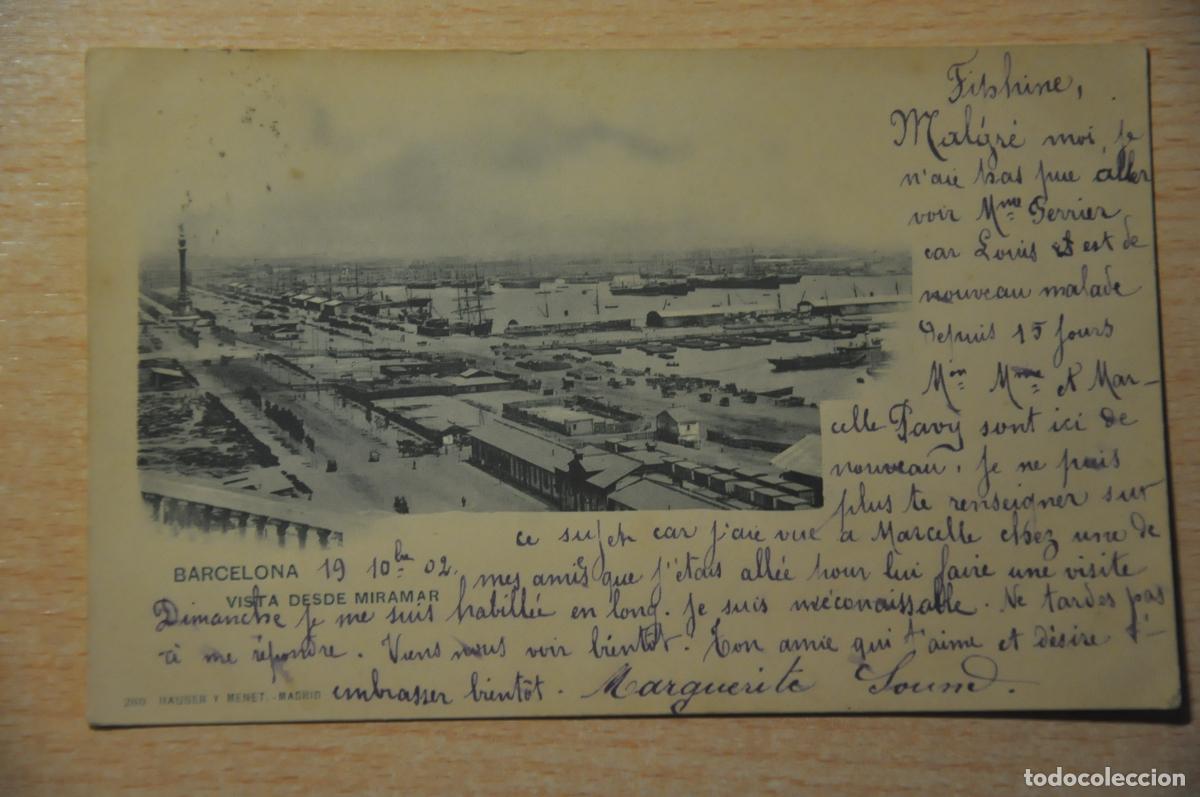 Fifihine,
Malgré moi, je
n'aie pas pue aller
voir Mme Perrier
car Louis est de
nouveau malade
depuis 15 jours
Mon Mme et Mar-
celle Pavy sont ici de
nouveau. Je ne puis
plus te renseigner sur
ce sujet car j'aie vue a Marcelle chez une de
BARCELONA 19 10bre 02. mes amies que j'étais allée pour lui faire une visite
VISTA DESDE MIRAMAR
Dimanche je me suis habillée en long. Je suis méconaissable. Ne tardes pas
à me répondre. Viens nous voir bientôt. Ton amie qui t'aime et désire t'-
embrasser bientôt. Marguerite
280 HAUSER Y MENET.-MADRID
todocoleccion